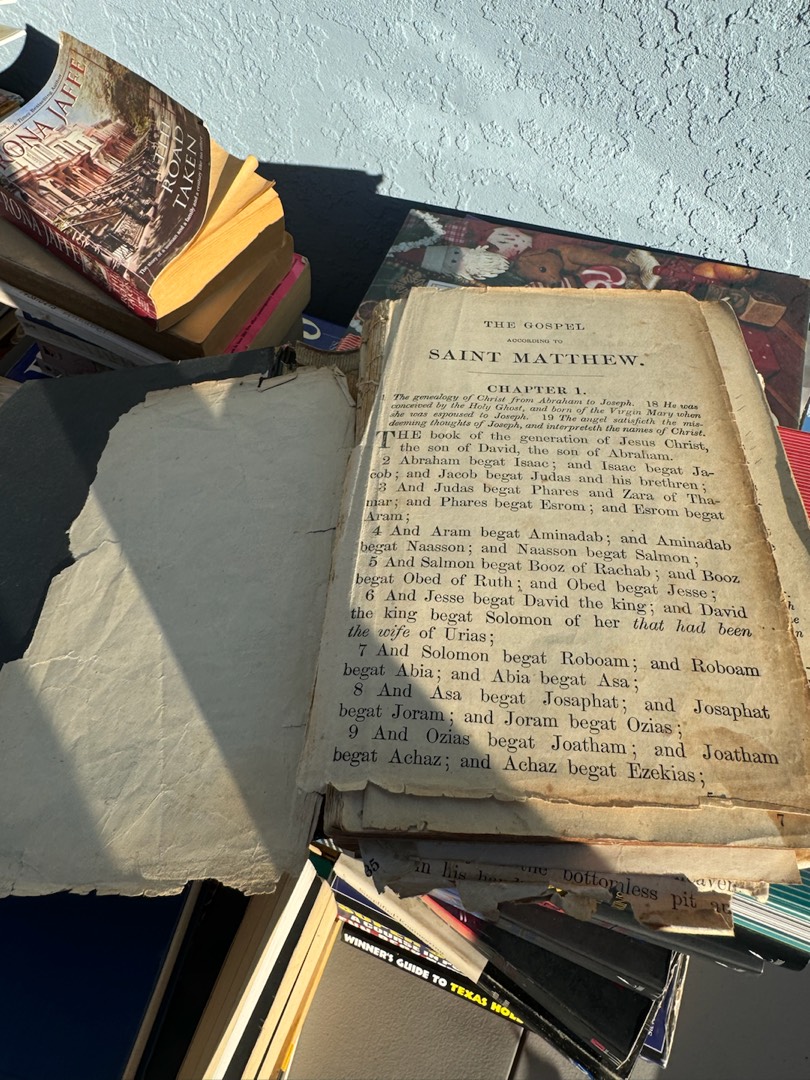 New York Times Bestselling Author
RONA JAFFE
THE
ROAD
TAKEN
RONA JAFFE
THE GOSPEL
ACCORDING TO
SAINT MATTHEW.
CHAPTER 1.
1 The genealogy of Christ from Abraham to Joseph. 18 He was
conceived by the Holy Ghost, and born of the Virgin Mary when
she was espoused to Joseph. 19 The angel satisfieth the mis-
deeming thoughts of Joseph, and interpreteth the names of Christ.
THE book of the generation of Jesus Christ,
the son of David, the son of Abraham.
2 Abraham begat Isaac; and Isaac begat Ja-
cob; and Jacob begat Judas and his brethren;
3 And Judas begat Phares and Zara of Tha-
mar; and Phares begat Esrom; and Esrom begat
Aram;
4 And Aram begat Aminadab; and Aminadab
begat Naasson; and Naasson begat Salmon;
5 And Salmon begat Booz of Rachab; and Booz
begat Obed of Ruth; and Obed begat Jesse;
6 And Jesse begat David the king; and David
the king begat Solomon of her that had been
the wife of Urias;
7 And Solomon begat Roboam; and Roboam
begat Abia; and Abia begat Asa;
8 And Asa begat Josaphat; and Josaphat
begat Joram; and Joram begat Ozias;
9 And Ozias begat Joatham; and Joatham
begat Achaz; and Achaz begat Ezekias;
7
35
in his the bottomless pit
WINNER'S GUIDE TO TEXAS HOL